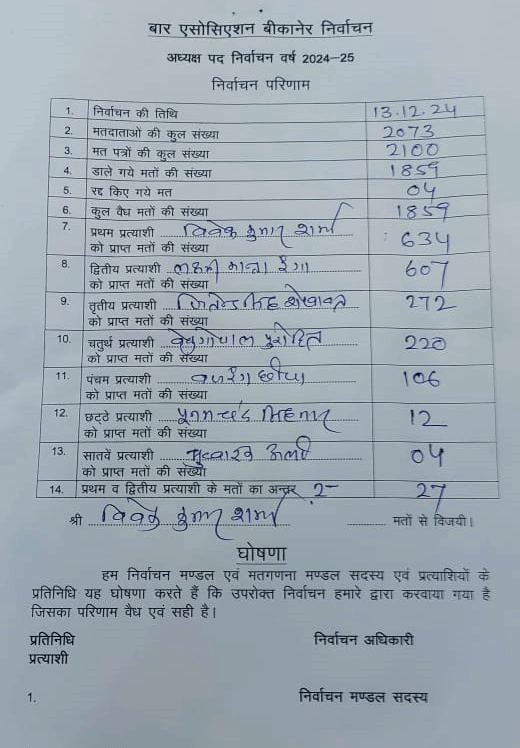 बार एसोसिएशन बीकानेर निर्वाचन
अध्यक्ष पद निर्वाचन वर्ष 2024-25
निर्वाचन परिणाम
1. निर्वाचन की तिथि 13.12.24
2. मतदाताओं की कुल संख्या 2073
3. मत पत्रों की कुल संख्या 2100
4. डाले गये मतों की संख्या 1859
5. रद्द किए गये मत 04
6. कुल वैध मतों की संख्या 1859
7. प्रथम प्रत्याशी विवेक कुमार शर्मा
को प्राप्त मतों की संख्या 634
8. द्वितीय प्रत्याशी रंगा
को प्राप्त मतों की संख्या 607
9. तृतीय प्रत्याशी शेखावत
को प्राप्त मतों की संख्या 272
10. चतुर्थ प्रत्याशी वेणुगोपाल पुरोहित
को प्राप्त मतों की संख्या 220
11. पंचम प्रत्याशी बजरंग छींपा
को प्राप्त मतों की संख्या 106
12. छट्ठे प्रत्याशी
को प्राप्त मतों की संख्या 12
13. सातवें प्रत्याशी अली
को प्राप्त मतों की संख्या 04
14. प्रथम व द्वितीय प्रत्याशी के मतों का अन्तर 27
श्री विवेक कुमार शर्मा मतों से विजयी।
घोषणा
हम निर्वाचन मण्डल एवं मतगणना मण्डल सदस्य एवं प्रत्याशियों के
प्रतिनिधि यह घोषणा करते हैं कि उपरोक्त निर्वाचन हमारे द्वारा करवाया गया है
जिसका परिणाम वैध एवं सही है।
प्रतिनिधि निर्वाचन अधिकारी
प्रत्याशी
1. निर्वाचन मण्डल सदस्य